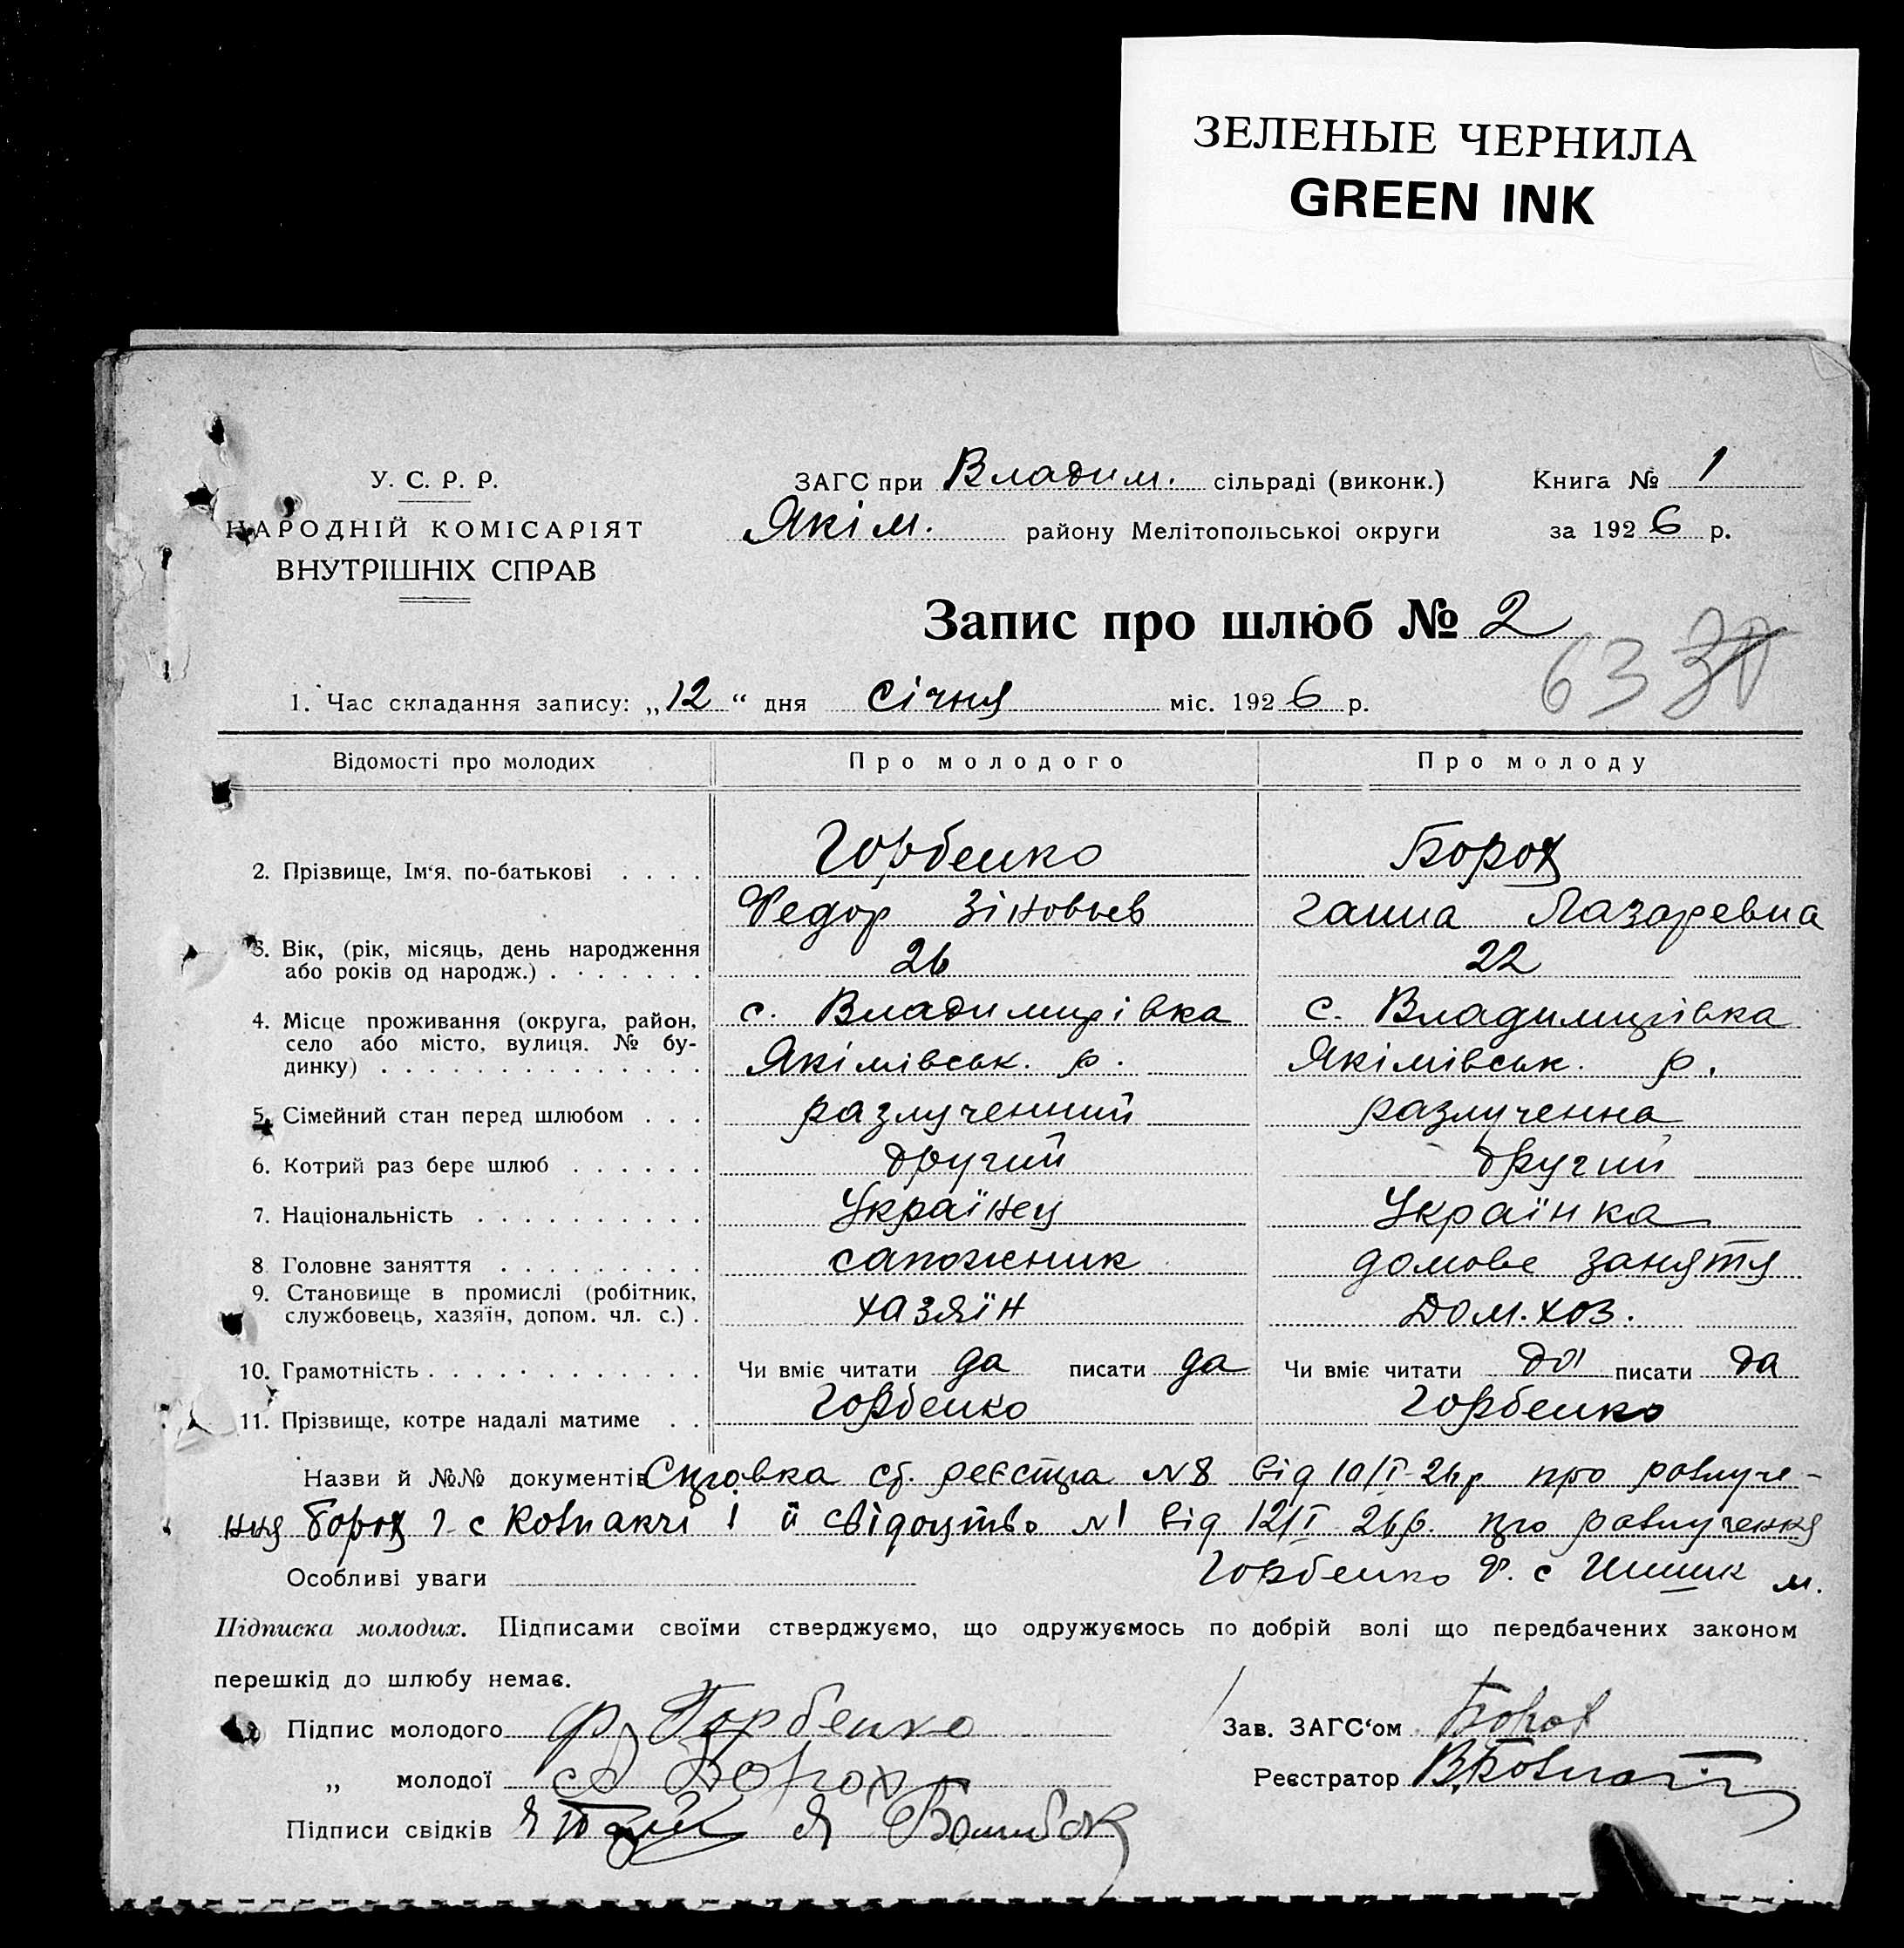 ЗЕЛЕНЫЕ ЧЕРНИЛА
GREEN INK
У. С. Р. Р.
НАРОДНІЙ КОМІСАРІЯТ
ВНУТРІШНІХ СПРАВ
ЗАГС при Владим. сільраді (виконк.) Книга № 1
Якім. району Мелітопольської округи за 1926 р.
Запис про шлюб № 2
63 30
1. Час складання запису: „12“ дня січня міс. 1926 р.
Відомості про молодих Про молодого Про молоду
2. Прізвище, Ім'я, по-батькові . . . . Горбенко Борох
Федор Зіновьев Ганна Лазаревна
3. Вік, (рік, місяць, день народження
або років од народж.) . . . . . . . 26 22
4. Місце проживання (округа, район,
село або місто, вулиця. № бу-
динку) . . . . . . . . . . . . . .
с. Владимирівка с. Владимирівка
Якімівськ. р. Якімівськ. р.
5. Сімейний стан перед шлюбом . . . разлученний разлученна
6. Котрий раз бере шлюб . . . . . . другий другий
7. Національність . . . . . . . . . . Українец Українка
8. Головне заняття . . . . . . . . . сапожник домове заняття
9. Становище в промислі (робітник,
службовець, хазяїн, допом. чл. с.) . хазяїн дом. хоз.
10. Грамотність . . . . . . . . . . . . Чи вміє читати да писати да Чи вміє читати да писати да
11. Прізвище, котре надалі матиме . . Горбенко Горбенко
Назви й №№ документів Справка реєстра № 8 від 10/I-26р про розлуче-
ння Борох Г. с й свідоцтво №1 від 12/I 26р. про розлучення
Особливі уваги Горбенко Ф. с м.
Підписка молодих. Підписами своїми стверджуємо, що одружуємось по добрій волі що передбачених законом
перешкід до шлюбу немає.
Підпис молодого Ф Горбенко Зав. ЗАГС'ом Борох
„ молодої Борох Реєстратор
Підписи свідків